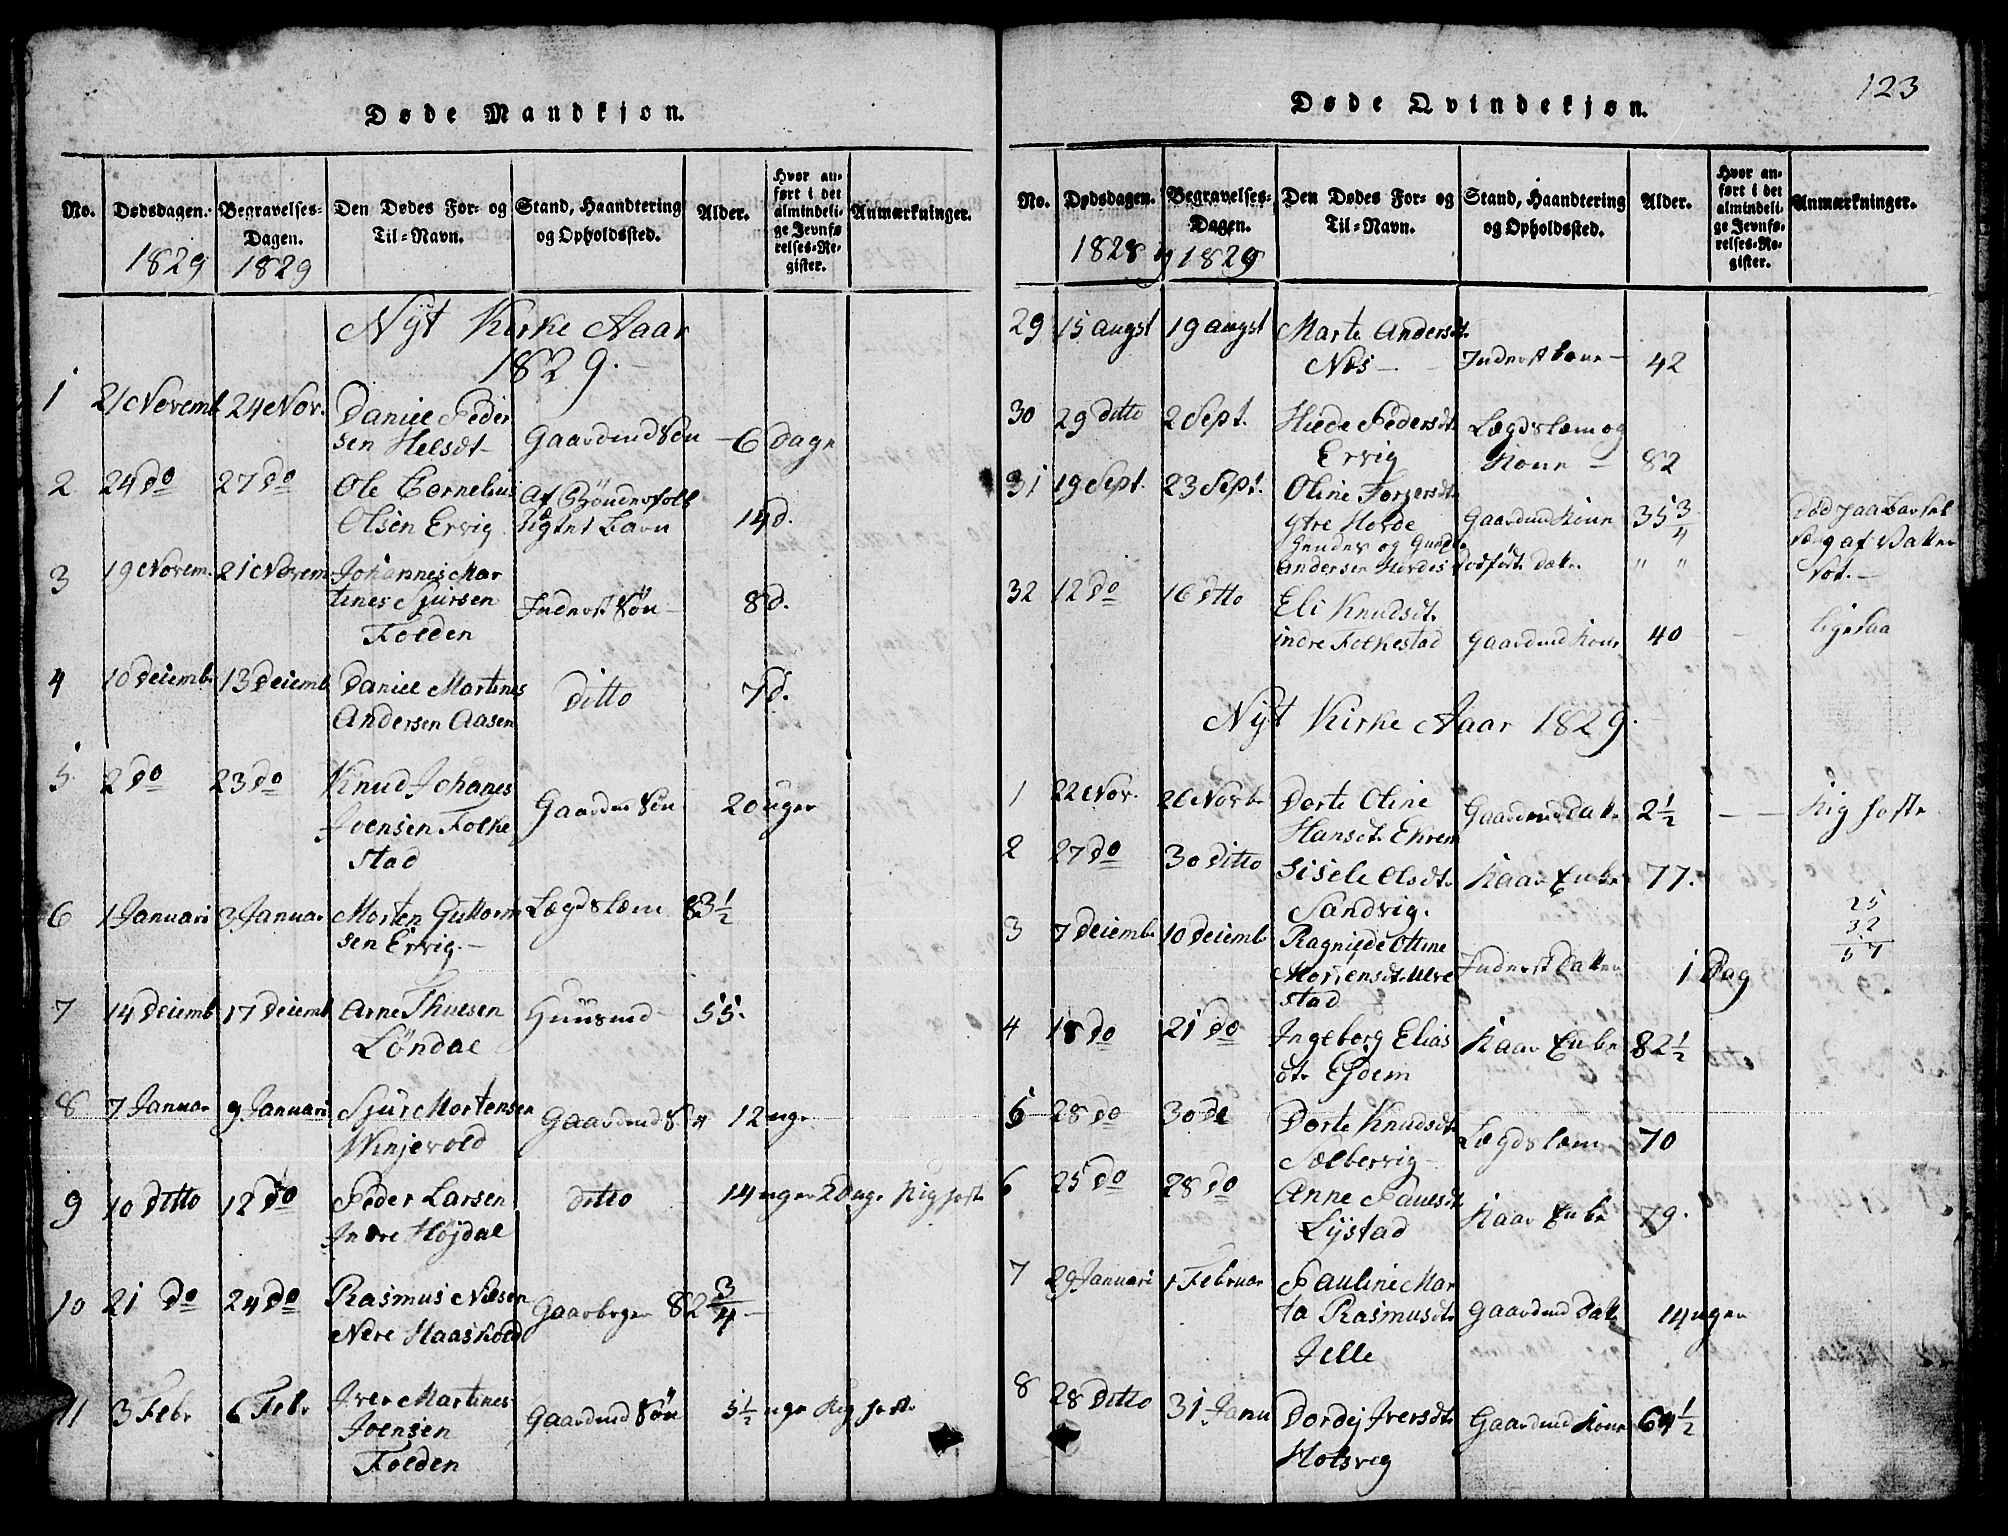 Døde Mandkjøn.
No.
Dødsdagen.
1829
Begravelses-
Dagen.
1829
Den Dødes For- og
Til-Navn.
Stand, Haandtering
og Opholdssted.
Alder.
Hvor an-
ført i det
almindeli-
ge Jevnfø
relses-Re-
gister.
Anmærkninger.
Nÿt Kirke Aaar
1829.
1 21 Novemb 24 Nov. Daniel Peder
sen Helsdt Gaardmd Søn 6 Dage
2 24 Do 27 Do Ole Cornelius Af Bøndesfolk
Olsen Ervig
14 d.
3 19 Novem. 21 Novem Johannes Mar
tines Sjursen Inderst Søn 8 d.
Folden
4 10 Decemb 13 Decemb Daniel Martines
Andersen Aasen ditto 7 d.
5 2 Do 23 Do Knud Johanes
Joensen Folke Gaardm Søn 20 uger
stad
6 1 Januari 3 Januar Morten Guttorm Lægdslem 83 1/2
sen Ervig.
7 14 Decemb 17 Decemb Arne Thuesen Huusmd 55.
Løndal
8 7 Januar 9 Januari Sjur Mortensen Gaardmd S 12 uge
Winjevold
9 10 Ditto 12 Do Peder Larsen ditto 14 uger 2 Dage Kighoste
Indre Højdal
10 21 Do 24 Do Rasmus Nilsen Gaarbrger 82 3/4
Nere Haaskold
11 3 Febr 6 Febr Iver Martines
Joensen Gaardmd Søn 5 1/2 uge Kighoste
Folden
123
Døde Qvindekjøn.
No.
Dødsdagen.
1828 
Begravelses-
Dagen.
1829
Den Dødes For- og
Til-Navn.
Stand, Haandtering
og Opholdssted.
Alder.
Hvor an-
ført i det
almindeli-
ge Jevnfø-
relses-Re-
gister.
Anmærkninger.
29 15 augst 19 augst Marte Andersdt.
Nes Inderst kone 42
30 29 ditto 2 Sept. Hilde Pedersdt. Lægdslem og
Ervig Kone 82
31 19 Sept. 23 Sept. Oline Torgersdt.
ytre Horde Gaardmd Kone 35 3/4
og
Andersen Hordes dødfødt Datr. " "
32 12 Do 16 ditto Eli Knudsdt.
indre Folkestad Gaardmd Kone 40 ligesaa
Nÿt Kirke Aaar 1829.
1 22 Nov. 26 Novbr Dorte Oline Gaardmd Datr 2 1/2 Kighoste
Hansdt. Ehrem
2 27 Do 30 Ditto Sisele Olsdt. Kaar Enke 77.
Sandvig.
25
32
57
3 7 Decemb 10 Decemb Ragnilde Oline
Mortensdt. Ulve Inderst Datter 1 Dag
stad
4 18 Do 21 Do Ingeborg Elias Kaar Enke 82 1/2
dt. Ejdem
5 28 Do 30 Do Dorte Knudsdt. Lægdslem 70
Solbervig
6 25 Do 28 Do Anne Paulsdt. Kaar Enke 79.
Lÿstad
7 29 Januari 1 Februar Pauline Mar
ta Rasmusdt. Gaardmd Datr 14 uger
Jelle
8 28 Ditto 31 Janu Dordej Iversdt. Gaardmd Kone 64 1/2
Holsvig